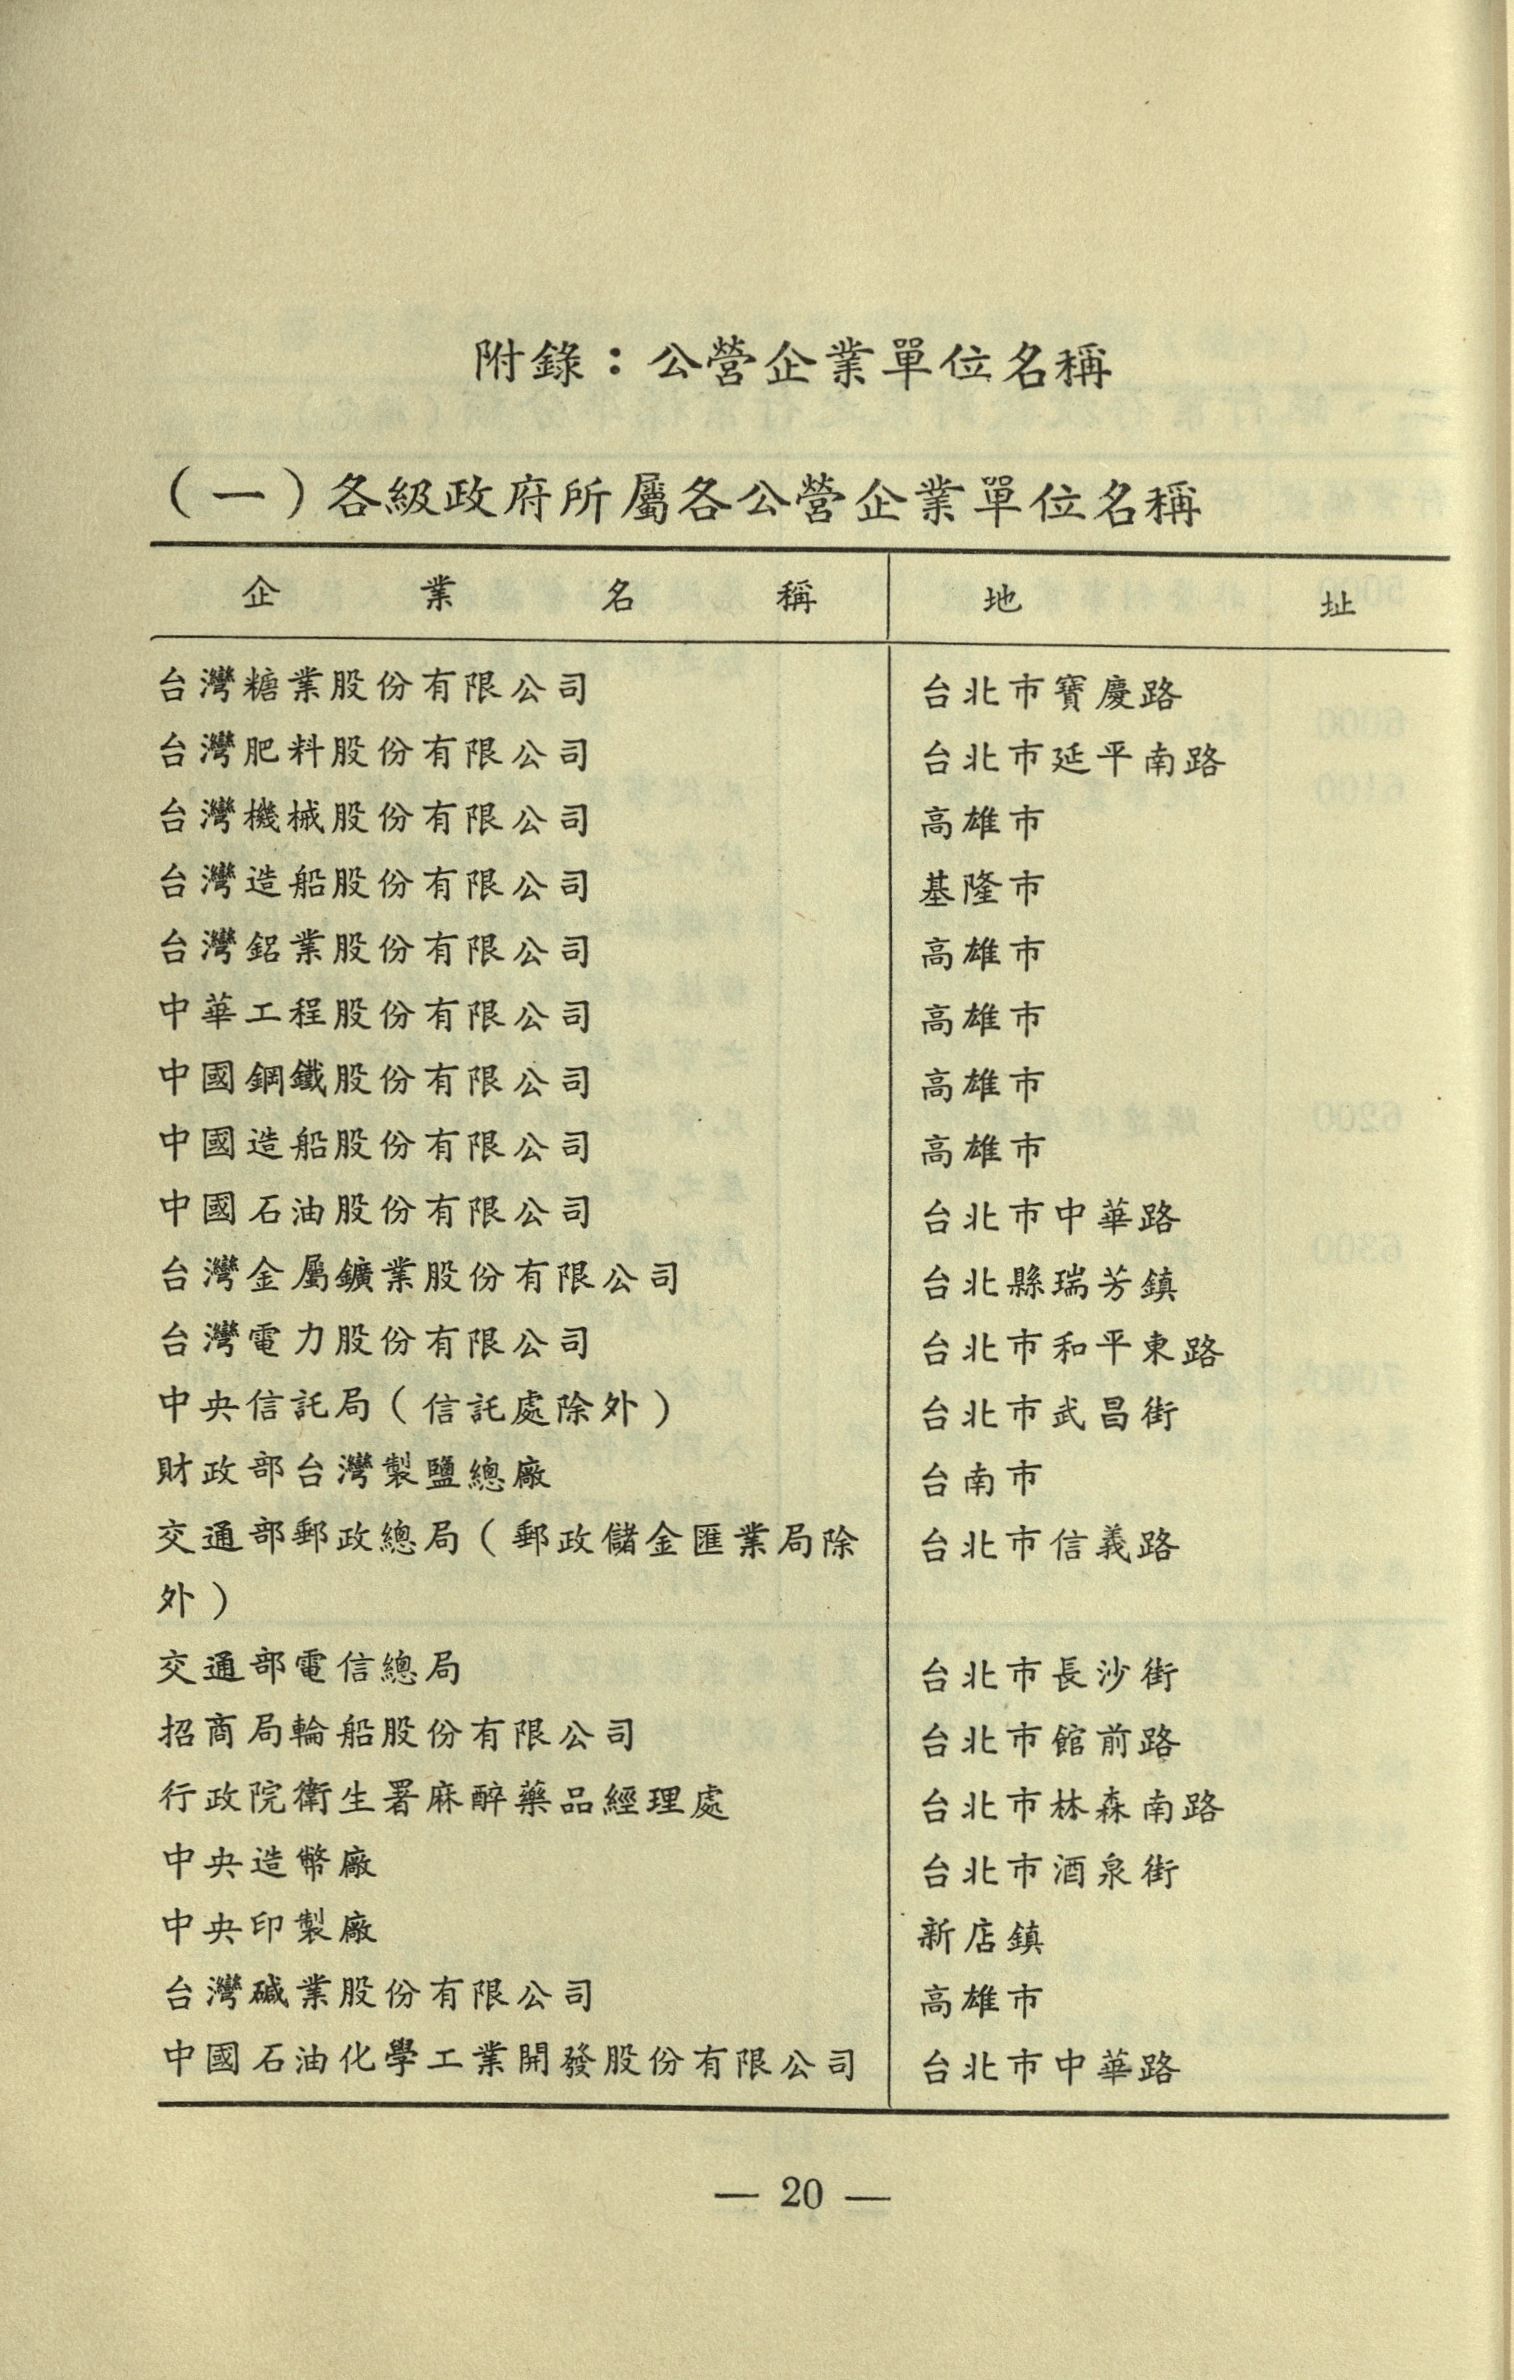 附錄：公營企業單位名稱
（一）各級政府所屬各公營企業單位名稱
企業名稱 地址
台灣糖業股份有限公司 台北市寶慶路
台灣肥料股份有限公司 台北市延平南路
台灣機械股份有限公司 高雄市
台灣造船股份有限公司 基隆市
台灣鋁業股份有限公司 高雄市
中華工程股份有限公司 高雄市
中國鋼鐵股份有限公司 高雄市
中國造船股份有限公司 高雄市
中國石油股份有限公司 台北市中華路
台灣金屬鑛業股份有限公司 台北縣瑞芳鎮
台灣電力股份有限公司 台北市和平東路
中央信託局（信託處除外） 台北市武昌街
財政部台灣製鹽總廠 台南市
交通部郵政總局（郵政儲金匯業局除 台北市信義路
外）
交通部電信總局 台北市長沙街
招商局輪船股份有限公司 台北市館前路
行政院衛生署麻醉藥品經理處 台北市林森南路
中央造幣廠 台北市酒泉街
中央印製廠 新店鎮
台灣碱業股份有限公司 高雄市
中國石油化學工業開發股份有限公司 台北市中華路
— 20 —